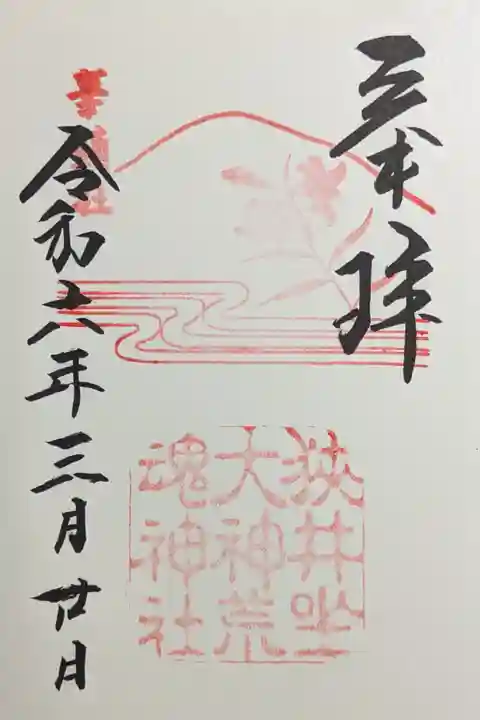 奉拝
狭井坐
大神荒
魂神社
令和六年三月廿日